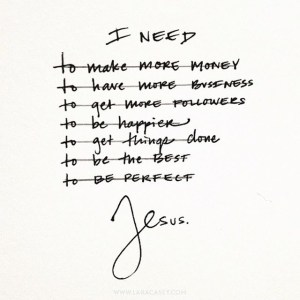 I NEED
to make MORE MONEY
to have MORE BUSINESS
to get MORE FOLLOWERS
to be happier
to get things done
to be the BEST
to BE PERFECT
Jesus.
WWW.LARACASEY.COM